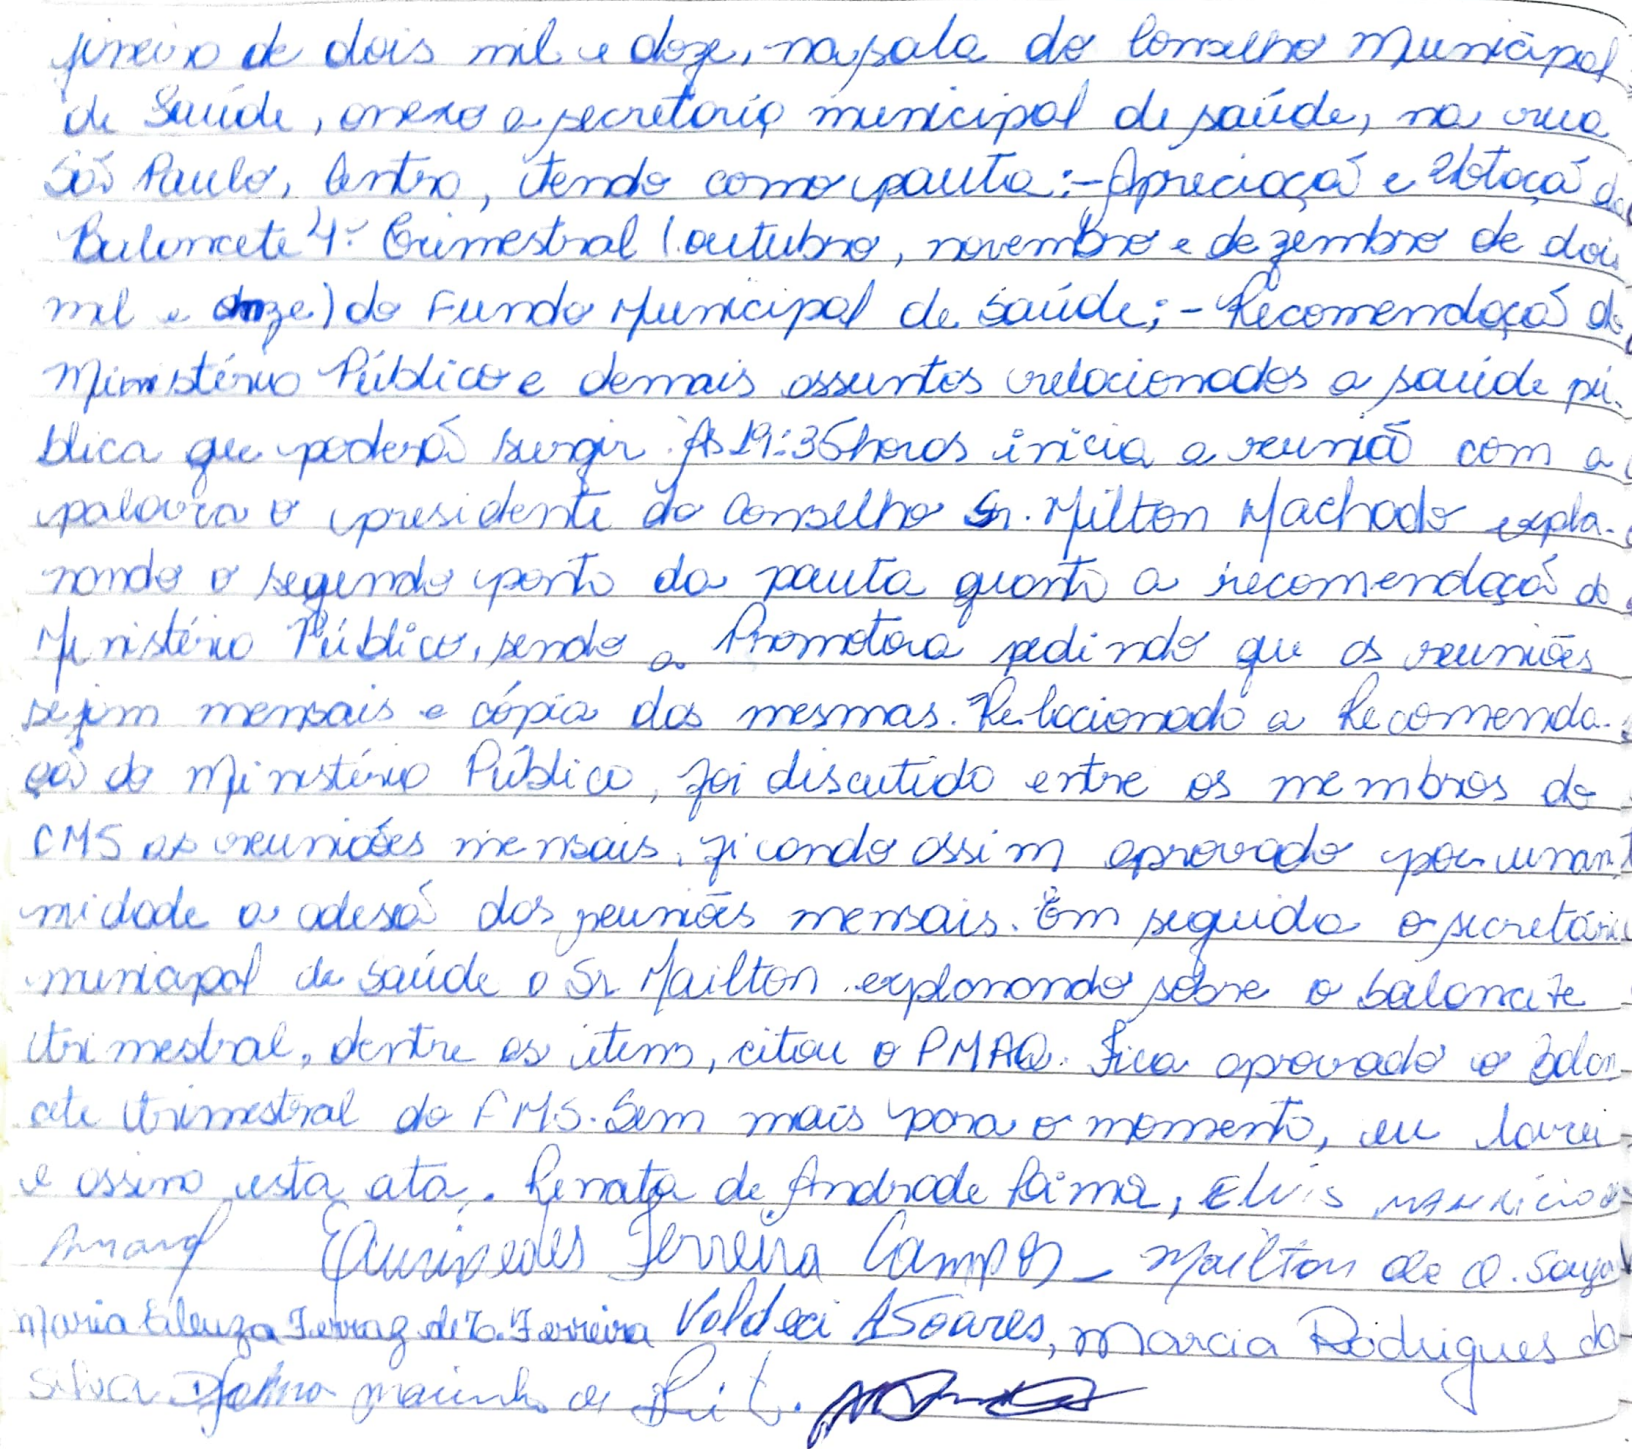 fineiro de dois mil e doze, na sala do Conselho Municipal
de Saúde, anexo a secretaria municipal de saúde, na rua
São Paulo, Centro, tendo como pauta:- Apreciação e Votação do
Balancete 4º Trimestral (outubro, novembro e dezembro de dois
mil e onze) do Fundo Municipal de Saúde; - Recomendação do
Ministério Público e demais assuntos relacionados a saúde pú-
blica que poderão surgir. Às 19:35 horas inicia a reunião com a
palavra o presidente do Conselho Sr. Milton Machado expla-
nando o segundo ponto da pauta quanto a recomendação do
Ministério Público, sendo a Promotora pedindo que as reuniões
sejam mensais e cópia das mesmas. Relacionado a Recomenda-
ção do Ministério Público, foi discutido entre os membros do
CMS as reuniões mensais, ficando assim aprovado por unani
midade a adesão das reuniões mensais. Em seguida o secretário
municipal de saúde o Sr Mailton explanando sobre o balancete
trimestral, dentre os itens, citou o PMAQ. Fica aprovado o Balan-
cete trimestral do FMS. Sem mais para o momento, eu lavrei
e assino esta ata. Renata de Andrade Lima, Elvis Maurício
Amaral Eurípedes Ferreira Campos - Mailton de O. Souza
Maria Cleuza Ferraz de Ferreira Valdeci A Soares, Marcia Rodrigues da
Silva marinho